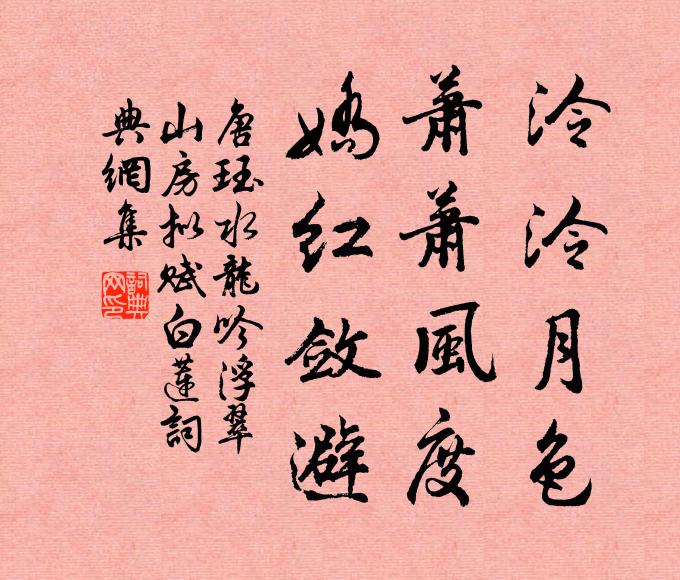 泠泠月色
蕭蕭風度
嬌紅斂避
唐珏水龍吟浮翠
山房拟賦白蓮詞
典網集
詞典
网印